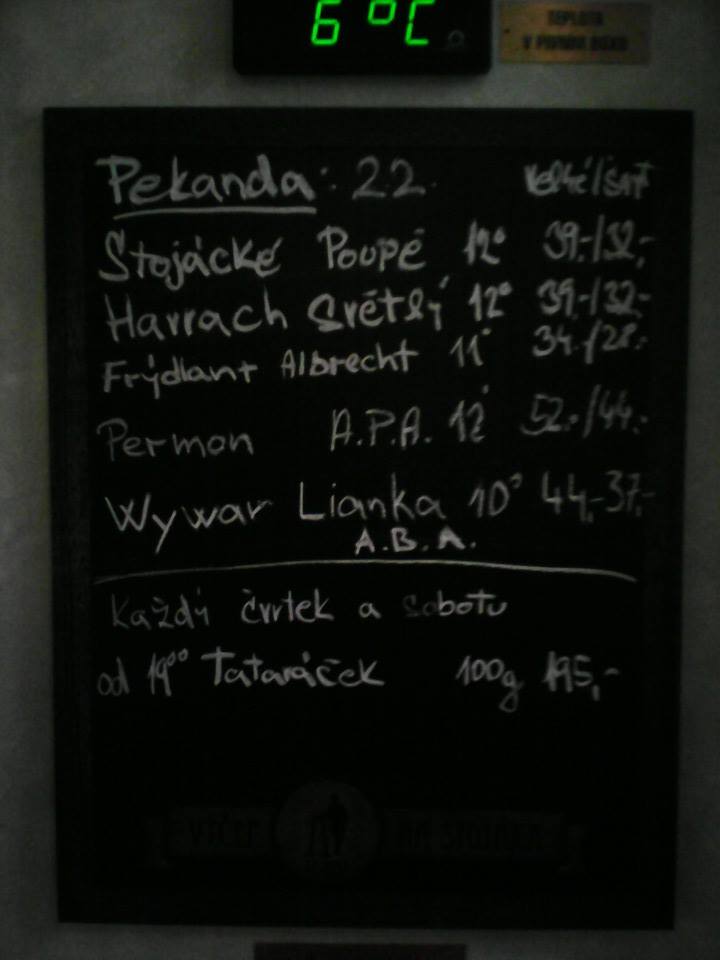 6 °C
TEPLOTA
V PIVNÍM BOXU
Pekanda: 22. velké/šnyt
Stojácké Poupě 12° 39,-/32,-
Harrach Světlý 12° 39,-/32,-
Frýdlant Albrecht 11° 34,-/28,-
Permon A.P.A. 12° 52,-/44,-
Wywar Lianka 10° 44,-37,-
A.B.A.
Každý čvrtek a sobotu
od 19⁰⁰ Tataráček 100g 195,-
VÝČEP NA STOJÁKA